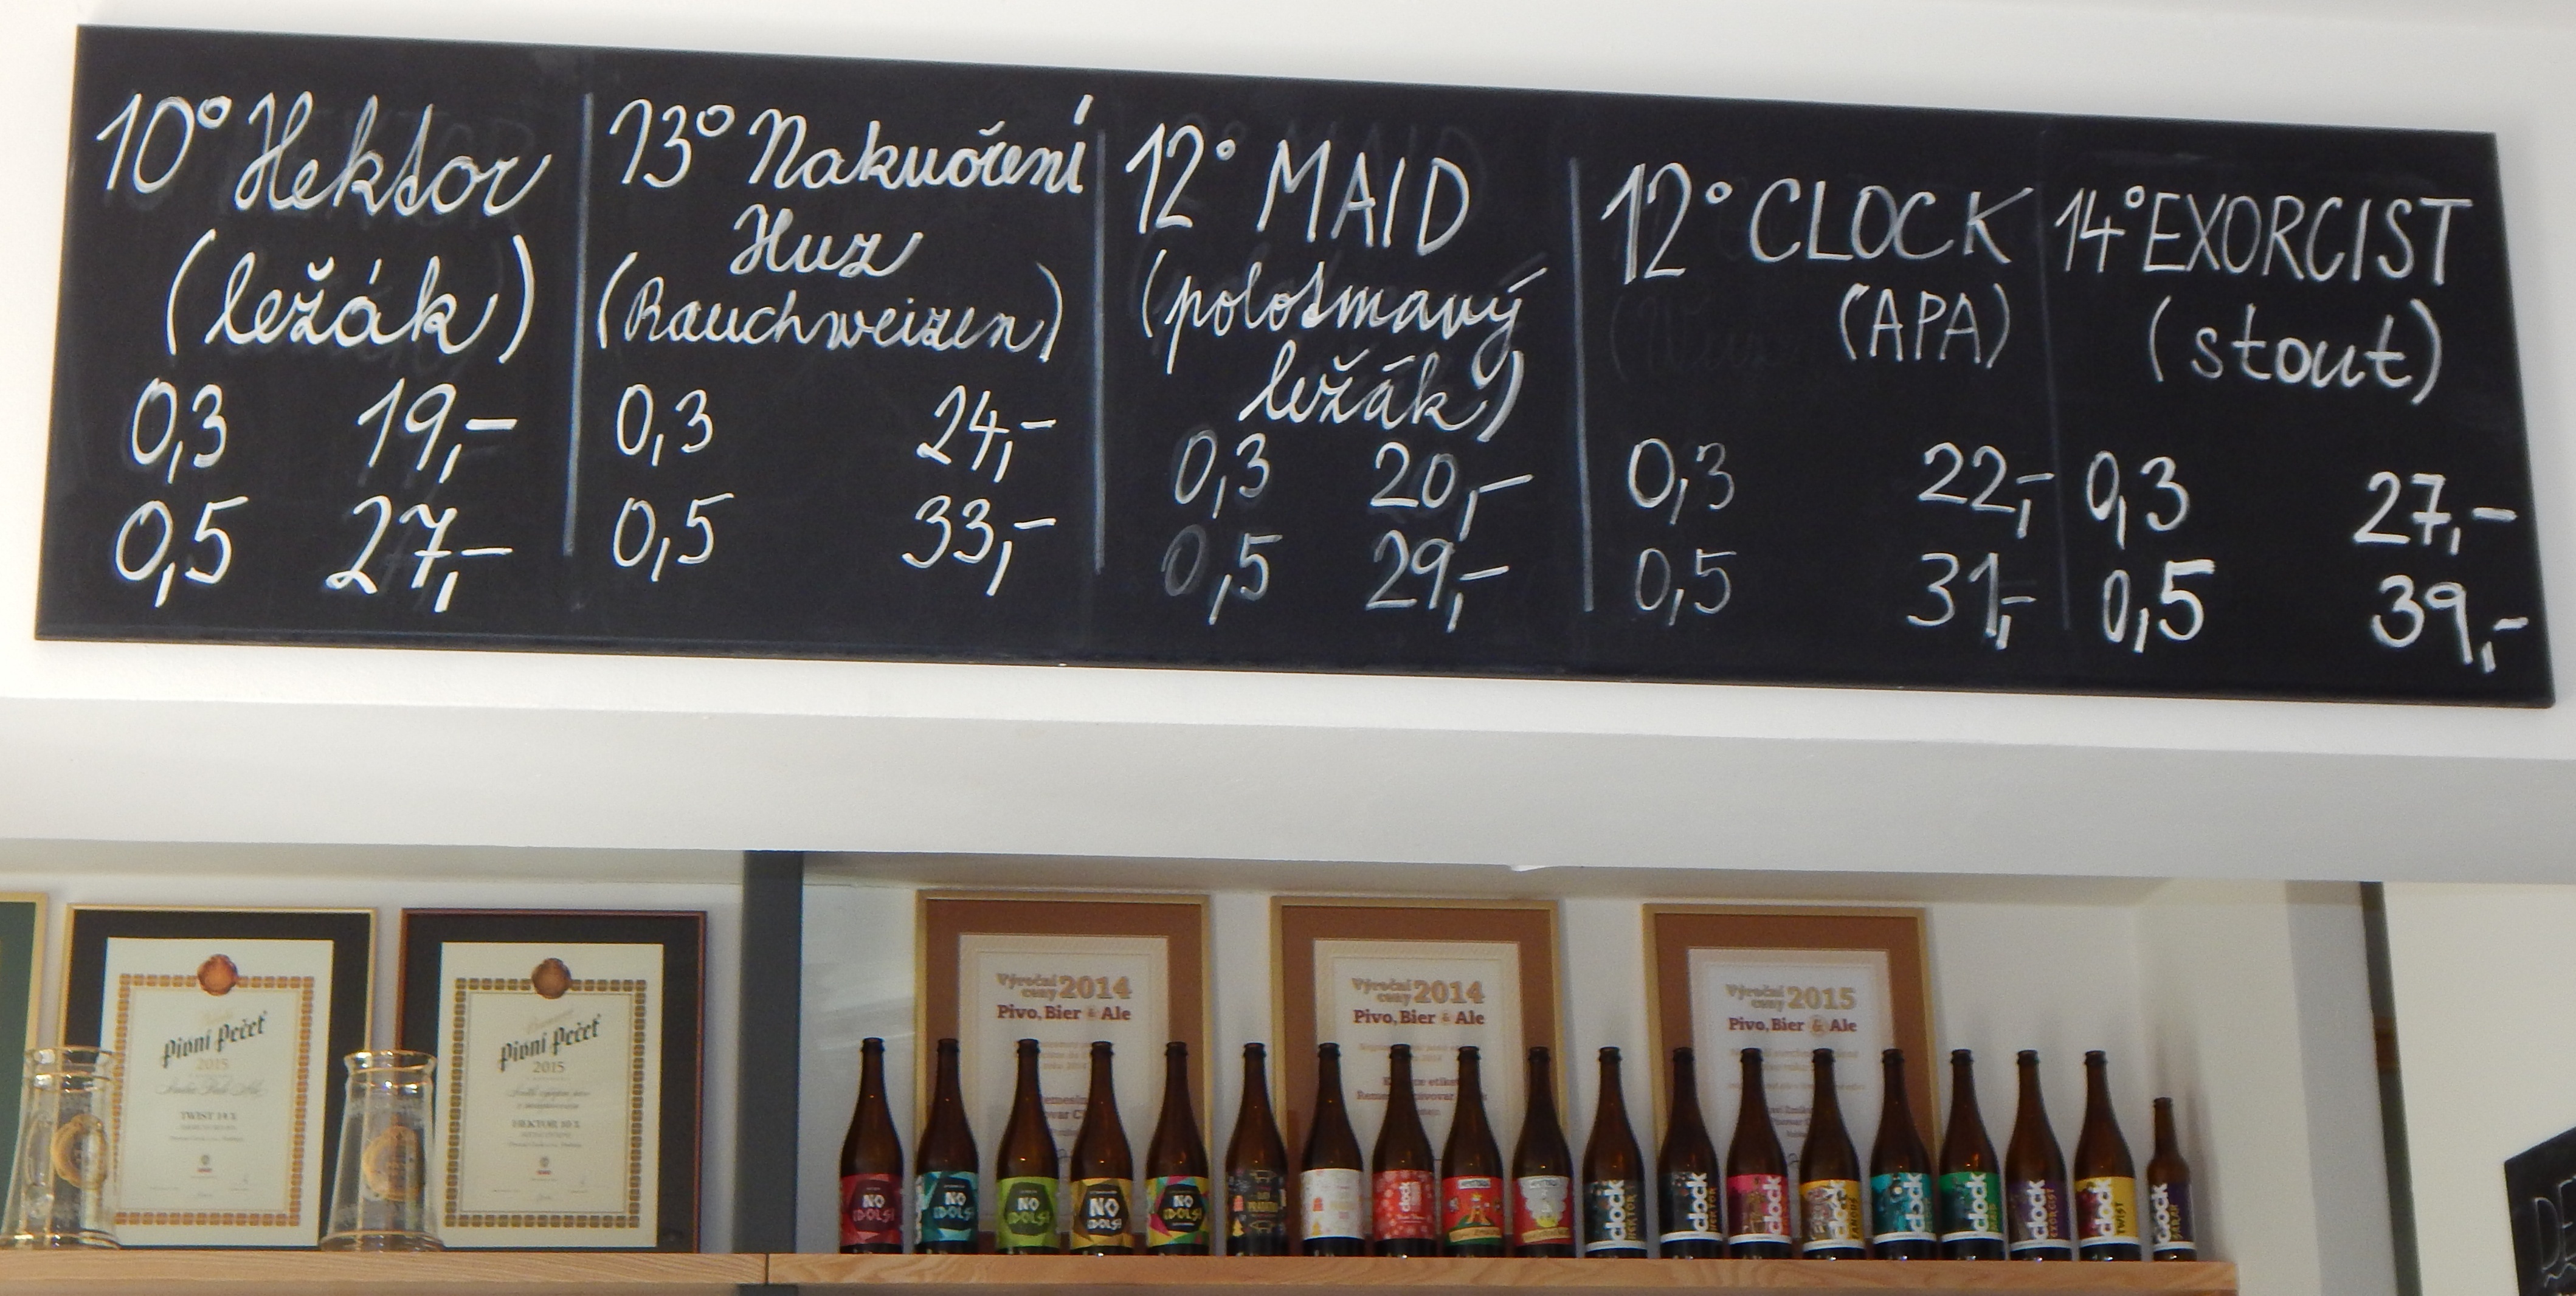 10° Hektor
(ležák)
0,3 19,-
0,5 27,-
13° Nakuoření
Huz
(Rauchweizen)
0,3 24,-
0,5 33,-
12° MAID
(polotmavý
ležák)
0,3 20,-
0,5 29,-
12° CLOCK
(APA)
0,3 22,-
0,5 31,-
14° EXORCIST
(stout)
0,3 27,-
0,5 39,-
Pivní Pečeť
2015
TWIST 14%
Pivní Pečeť
2015
HEKTOR 10%
Výroční
ceny 2014
Pivo, Bier & Ale
Výroční
ceny 2014
Pivo, Bier & Ale
Výroční
ceny 2015
Pivo, Bier & Ale
NO
IDOLS!
NO
IDOLS!
NO
IDOLS!
NO
IDOLS!
NO
IDOLS!
clock
clock
HEKTOR
clock
HEKTOR
clock
clock
clock
clock
clock
EXORCIST
clock
TWIST
clock